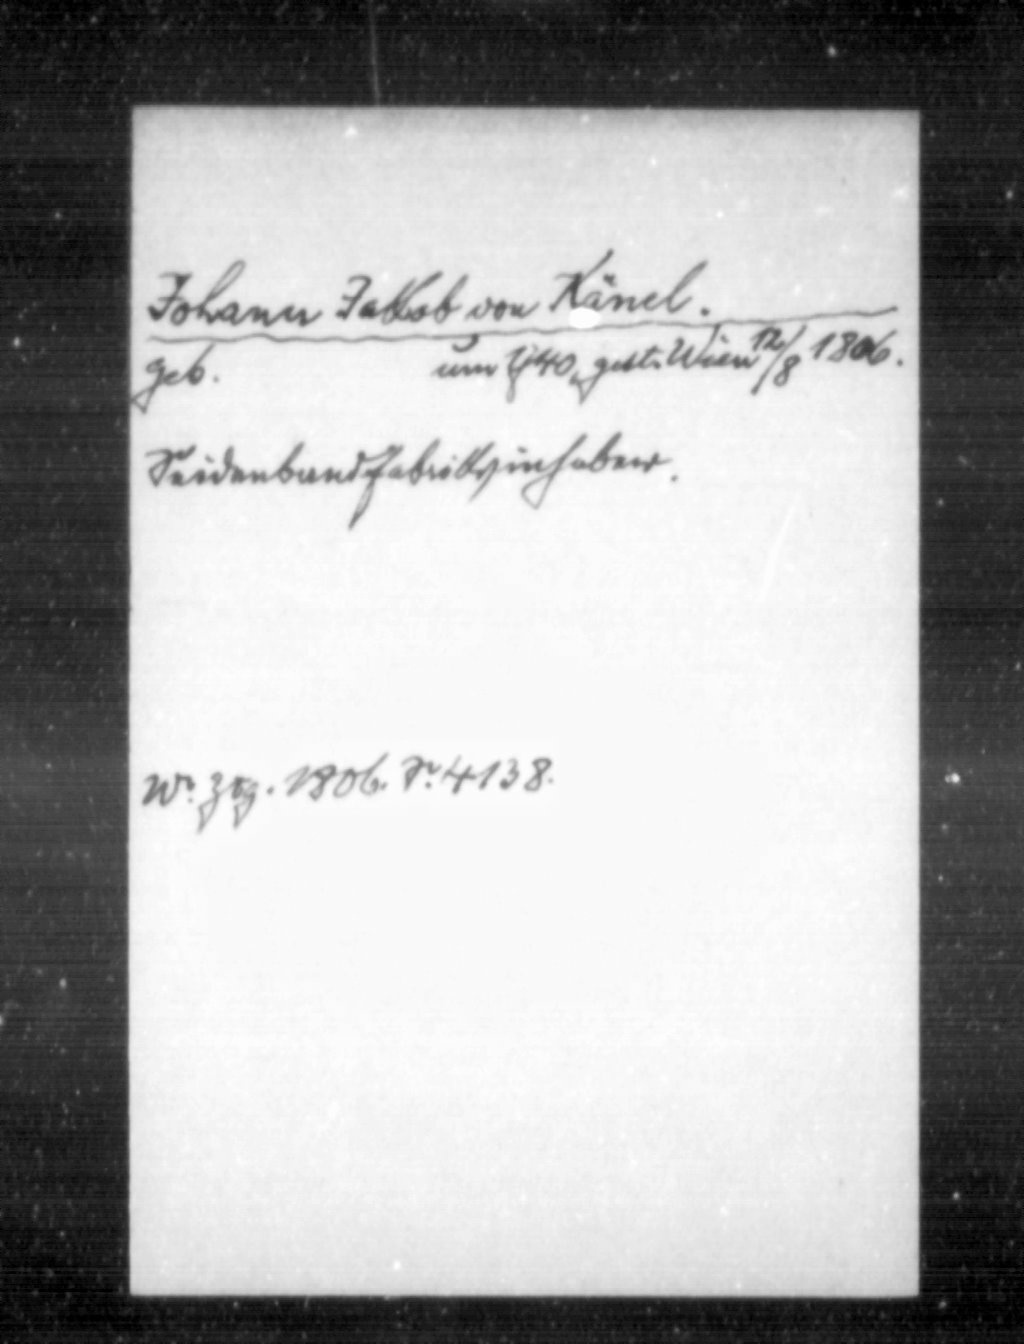 Johann Jakob von Känel.
geb. um 1740, gest. Wien 12/8 1806.
Seidenbandfabriksinhaber.
Wr. Ztg. 1806. S. 4138.